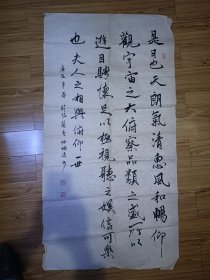 是日也天朗氣清惠風和暢仰
觀宇宙之大俯察品類之盛所以
遊目騁懷足以極視聽之娛信可樂
也夫人之相與俯仰一世
年春